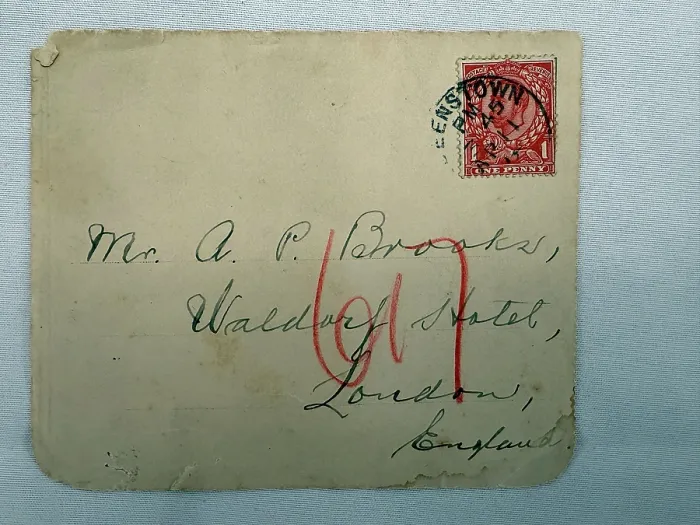 EENSTOWN
PM
45
ONE PENNY
Mr. A. P. Brooks,
Waldorf Hotel,
London,
England.